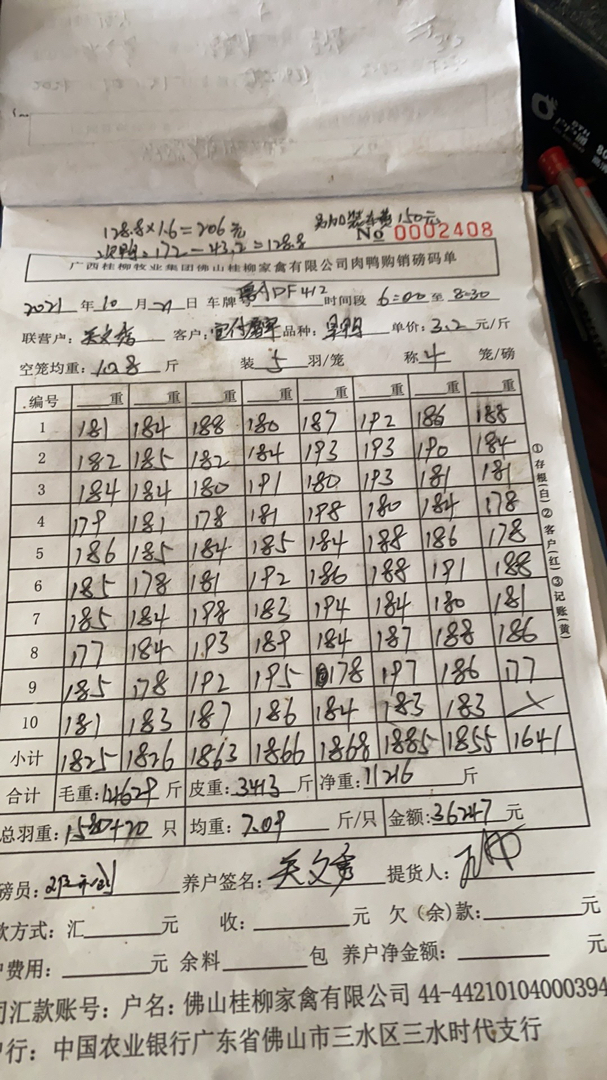 128.8×1.6=206元
150元
172-43.2=128.8
No 0002408
广西桂柳牧业集团佛山桂柳家禽有限公司肉鸭购销磅码单
2021 年 10 月 21 日 车牌号 DF412 时间段 6:00 至 8:30
联营户: 客户: 品种: 单价: 3.2 元/斤
空笼均重: 10.8 斤 装 5 羽/笼 称 4 笼/磅
编号 重 重 重 重 重 重 重 重
1 181 184 188 180 187 192 186 188
2 182 185 182 184 193 193 190 184
3 184 184 180 191 180 193 181 181
4 179 181 178 181 198 180 184 178
5 186 185 184 185 184 188 186 178
6 185 178 181 192 186 188 191 188
7 185 184 198 183 194 184 180 181
8 177 184 193 189 184 187 188 186
9 185 178 192 195 178 197 186 177
10 181 183 187 186 184 183 183
小计 1825 1826 1863 1866 1868 1885 1855 1641
合计 毛重: 14629 斤 皮重: 3413 斤 净重: 11216 斤
总羽重: 1580+20 只 均重: 7.09 斤/只 金额: 36247 元
磅员: 养户签名: 提货人:
款方式: 汇 元 收: 元 欠(余)款: 元
户费用: 元 余料 包 养户净金额: 元
司汇款账号: 户名: 佛山桂柳家禽有限公司 44-44210104000394
行: 中国农业银行广东省佛山市三水区三水时代支行
①存根(白)②客户(红)③记账(黄)